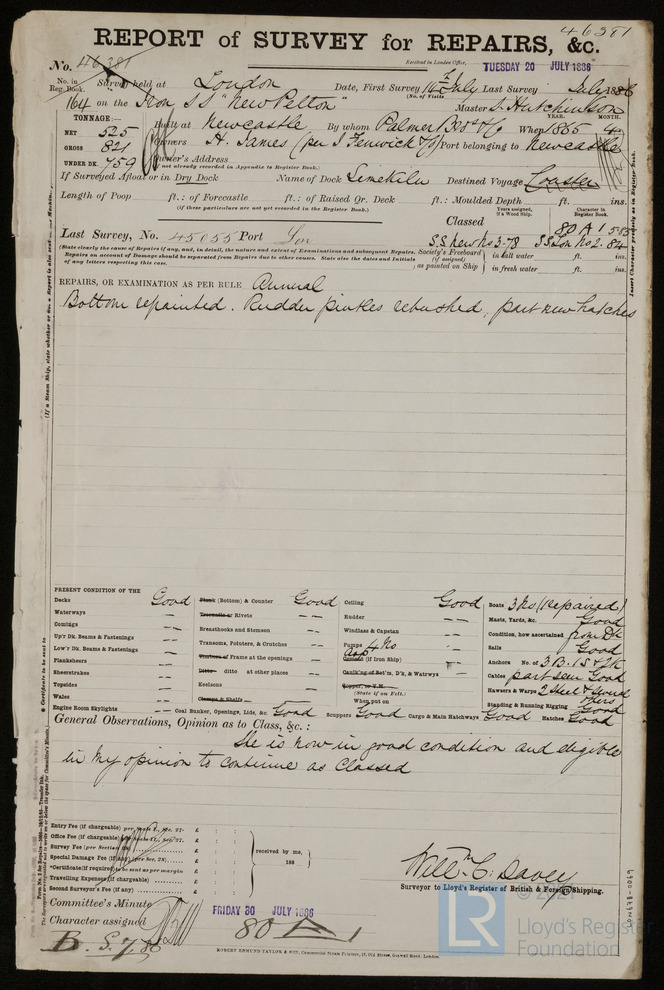 46381
REPORT of SURVEY for REPAIRS, &c.
No. 46381
Received in London Office, TUESDAY 20 JULY 1886
No. in Reg. Book. Survey held at London Date, First Survey 14th July Last Survey July 1886
(No. of Visits
164 on the Iron SS "New Pelton" Master S. Hutchinson
TONNAGE:— YEAR. MONTH.
NET 525 Built at Newcastle By whom Palmer Bros & Co When 1865 4
GROSS 821 Owners H. James (per J Fenwick & Co) Port belonging to Newcastle
UNDER DK. 759 Owner's Address
(if not already recorded in Appendix to Register Book.)
If Surveyed Afloat or in Dry Dock Name of Dock Limekiln Destined Voyage Coaster
Length of Poop ft.: of Forecastle ft.: of Raised Qr. Deck ft.: Moulded Depth ft. ins.
(if these particulars are not yet recorded in the Register Book.)
Years assigned, if a Wood Ship. Character in Register Book.
Classed 80 A 1 5-85
Last Survey, No. 45055 Port Lon
S.S New No 3-78 S S Lon No 2-84
(State clearly the cause of Repairs if any, and, in detail, the nature and extent of Examinations and subsequent Repairs.
Repairs on account of Damage should be separated from Repairs due to other causes. State also the dates and Initials
of any letters respecting this case.
Society's Freeboard (if assigned) as painted on Ship
in salt water ft. ins.
in fresh water ft. ins.
REPAIRS, OR EXAMINATION AS PER RULE Annual
Bottom repainted. Rudder pintles rebushed, part new hatches
PRESENT CONDITION OF THE
Decks Good
Waterways
Comings
Up'r Dk. Beams & Fastenings
Low'r Dk. Beams & Fastenings
Planksheers
Sheerstrakes
Topsides
Wales
Engine Room Skylights
Plank (Bottom) & Counter Good
Treenails or Rivets
Breasthooks and Stemson
Transoms, Pointers, & Crutches
Timbers of Frame at the openings
Ditto ditto at other places
Keelsons
Clamps & Shelfs
Coal Bunker, Openings, Lids, &c. Good
Ceiling Good
Rudder
Windlass & Capstan
Pumps 4 No
(if Iron Ship)
Caulking of Bot'm, D'k, & Watrwys
Copper, or Y.M.
(State if on Felt.)
When put on
Scuppers Good Cargo & Main Hatchways Good
Boats 3 No (repaired)
Masts, Yards, &c. Good
Condition, how ascertained from Dk
Sails Good
Anchors No. of 3 B. 1 S & 2 K
Cables part seen Good
Hawsers & Warps 2 Steel & Good others
Standing & Running Rigging Good
Hatches Good
General Observations, Opinion as to Class, &c.:
She is now in good condition and eligible
in my opinion to continue as Classed
Entry Fee (if chargeable) £ : :
Office Fee (if chargeable) £ : :
Survey Fee (per Section £ : :
Special Damage Fee (if any) (per Sec. 28) £ : :
*Certificate (if required) to be sent as per margin
Travelling Expenses (if chargeable) £ : :
Second Surveyor's Fee (if any) £ : :
received by me,
188
Willm C. Davey
Surveyor to Lloyd's Register of British & Foreign Shipping.
Committee's Minute FRIDAY 30 JULY 1886
Character assigned 80 A 1
B. S. 7, 86
ROBERT EDMUND TAYLOR & SON, Commercial Steam Printers, 19, Old Street, Goswell Road, London.
LR
© 2021
Lloyd's Register
Foundation